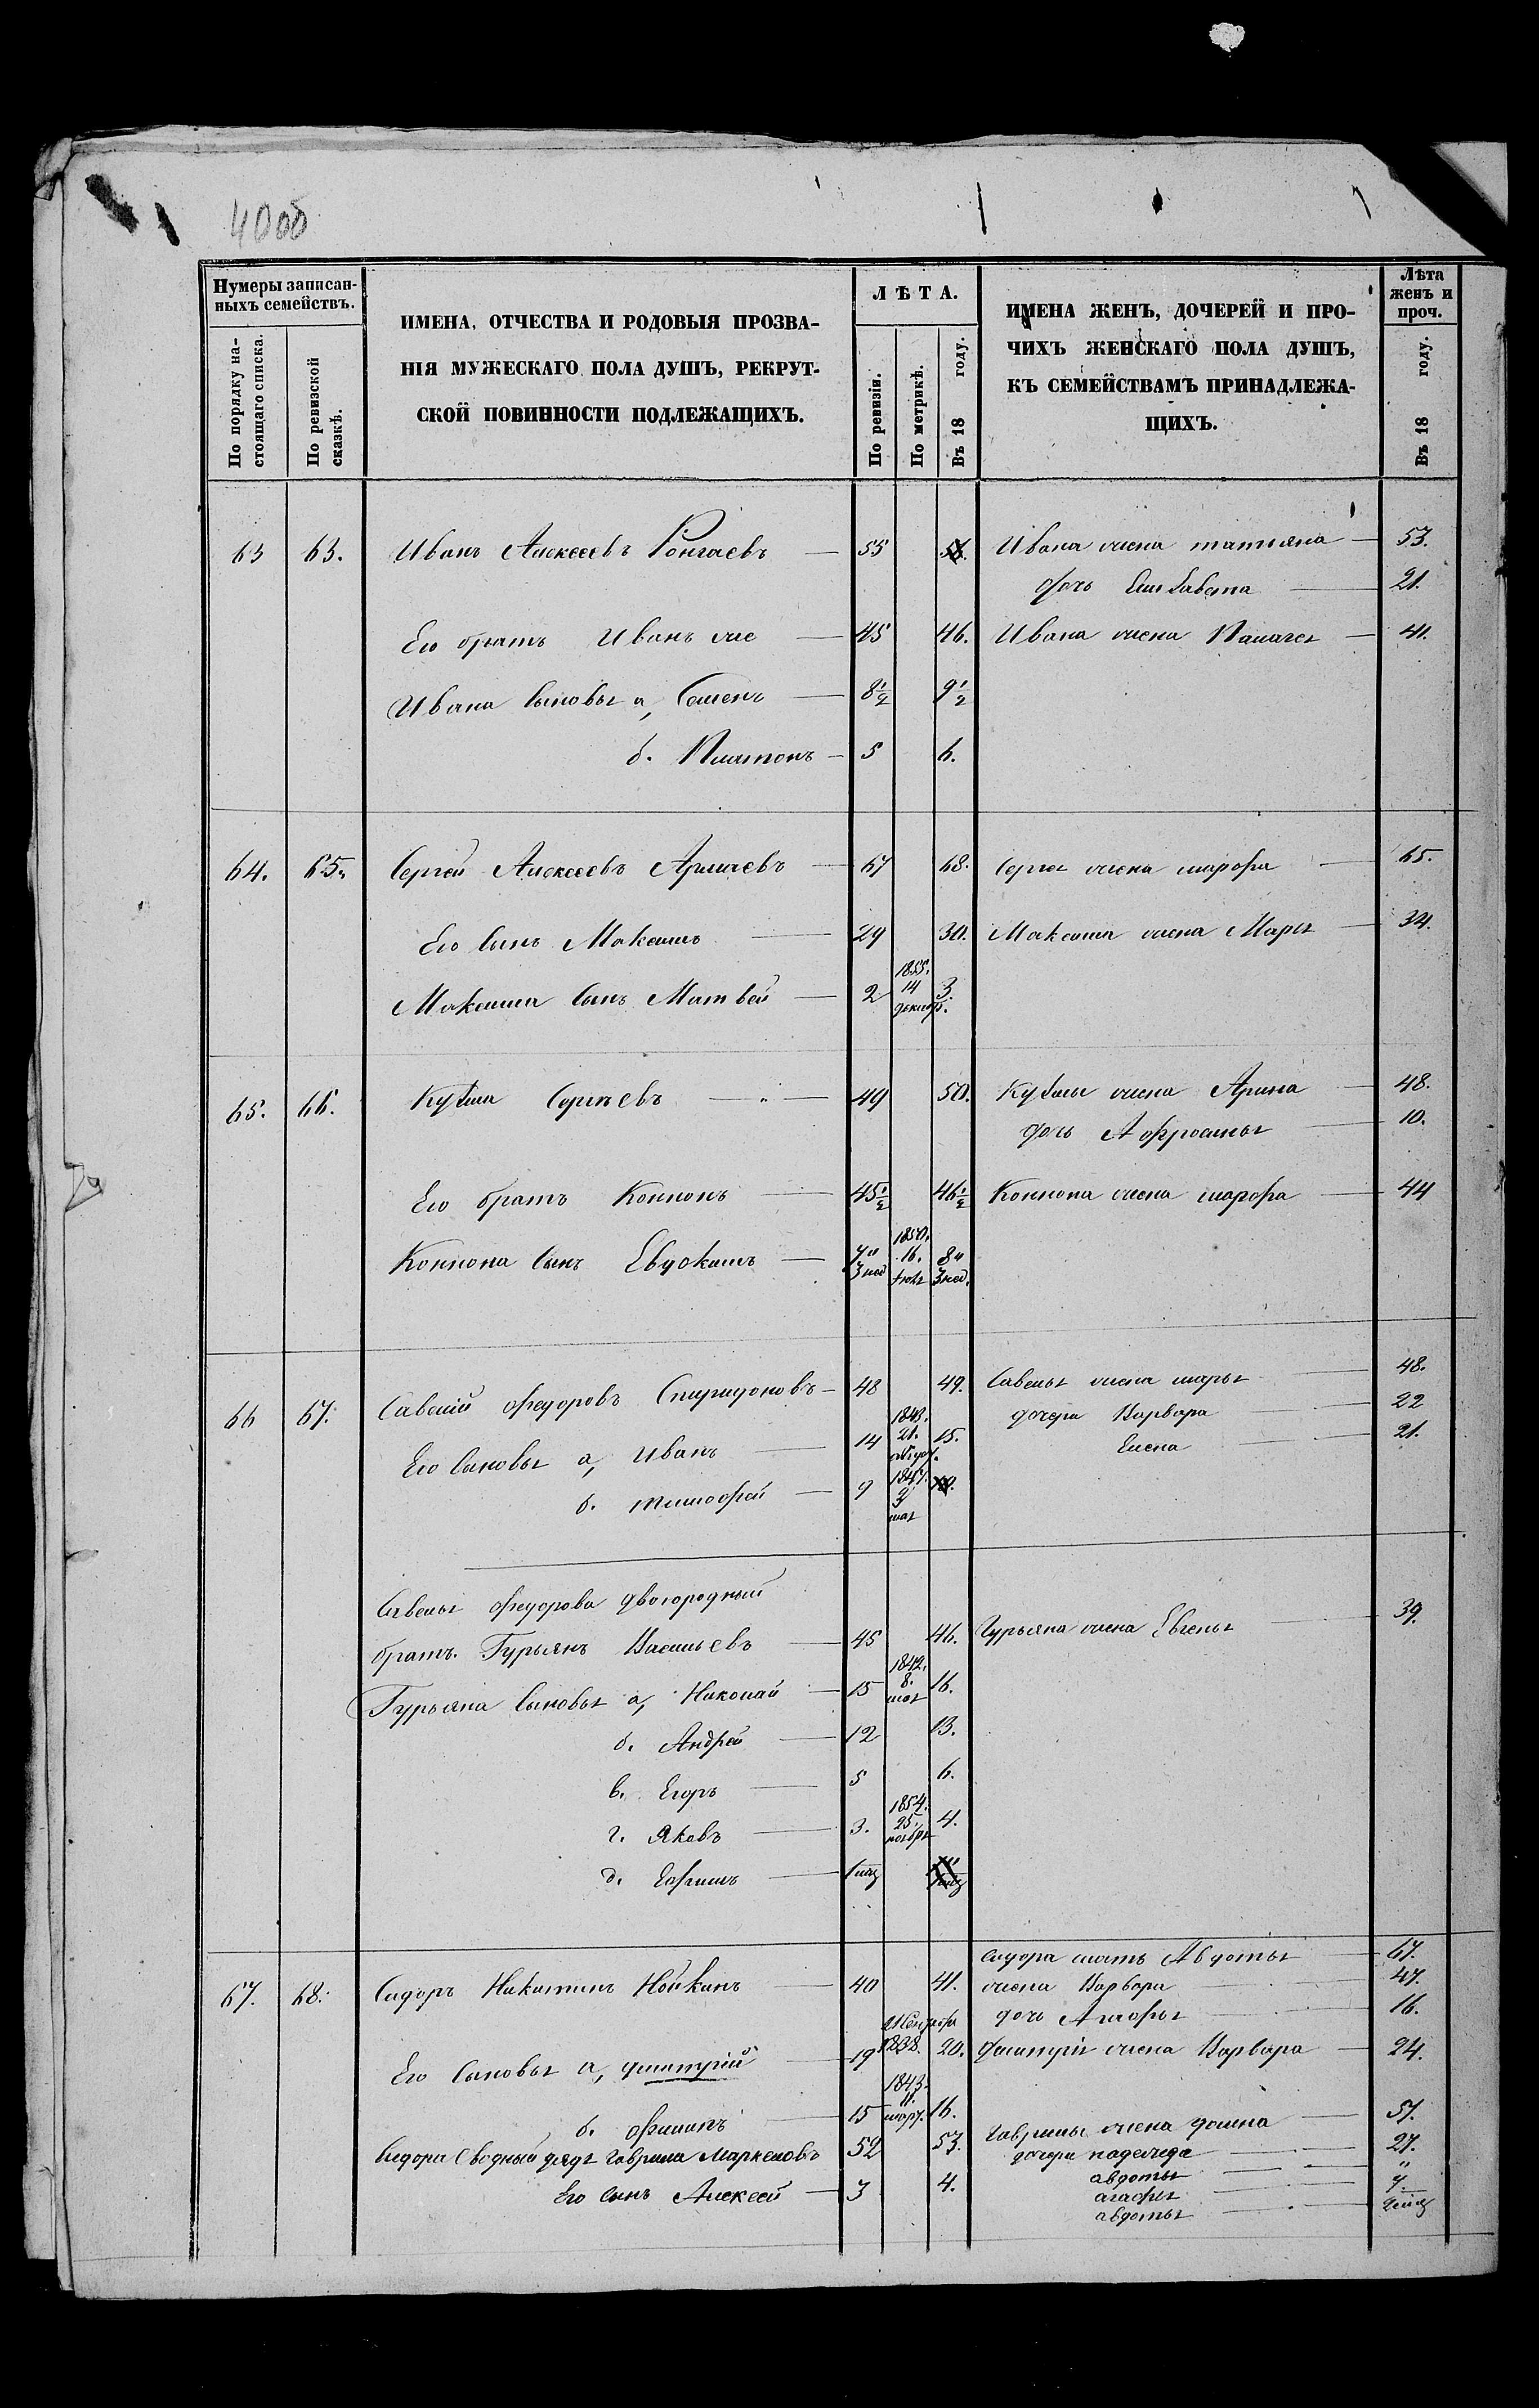 400б
Нумеры записан-
ныхъ семействъ.
По порядку на-
стоящаго списка.
По ревизской
сказкѣ.
ИМЕНА, ОТЧЕСТВА И РОДОВЫЯ ПРОЗВА-
НІЯ МУЖЕСКАГО ПОЛА ДУШЪ, РЕКРУТ-
СКОЙ ПОВИННОСТИ ПОДЛЕЖАЩИХЪ.
ЛѢТА.
По ревизіи.
По метрикѣ.
Въ 18 году.
ИМЕНА ЖЕНЪ, ДОЧЕРЕЙ И ПРО-
ЧИХЪ ЖЕНСКАГО ПОЛА ДУШЪ,
КЪ СЕМЕЙСТВАМЪ ПРИНАДЛЕЖА-
ЩИХЪ.
Лѣта
женъ и
проч.
Въ 18 году.
63 63. Иванъ Алексеевъ Ронгаевъ 55 Ивана жена татьяна 53.
дочь Елизавета 21.
Его братъ Иванъ же 45 46. Ивана жена Палагея 41.
Ивана сыновья а, Семенъ 8½ 9½
б. Платонъ 5 6.
64. 65. Сергей Алексеевъ 67 68. Сергея жена марфа 65.
Его сынъ Максимъ 29 30. Максима жена Марья 34.
Максима сынъ Матвей 2 1855. 14 декабр. 3.
65. 66. Кузма Сергеевъ 49 50. Кузмы жена Арина 48.
дочь Афросинья 10.
Его братъ Коннонъ 45½ 46½ Коннона жена марфа 44
Коннона сынъ Евдокимъ 7" 3 нед 1850. 16. 8" 3 нед.
66 67. Савелій федоровъ Спиридоновъ 48 49. Савелья жена марья 48.
дочери Варвара 22
Его сыновья а, Иванъ 14 1843. 21. 15. Елена 21.
б. тимофей 9 1847. 3 мая
Савелья федорова двоюродный
братъ. Гурьянъ Васильевъ 45 46. Гурьяна жена Евгенья 39.
Гурьяна сыновья а, Николай 15 1842. 8. мая 16.
б. Андрей 12 13.
в. Егоръ 5 6.
г. Яковъ 3. 1854. 25. ноября 4.
д. Ефимъ
сидора мать Авдотья 67.
67. 68. Сидоръ Никитинъ 40 41. жена Варвара 47.
дочь 16.
Его сыновья а, дмитрій 19 1838. 20. дмитрія жена Варвара 24.
б. филипъ 15 1843. 11. март. 16.
Сидора сводный дядя гаврила Маркеловъ 52 53. гаврилы жена домна 57.
дочери надежда 27.
Его сынъ Алексей 3 4. авдотья "
агафья
авдотья